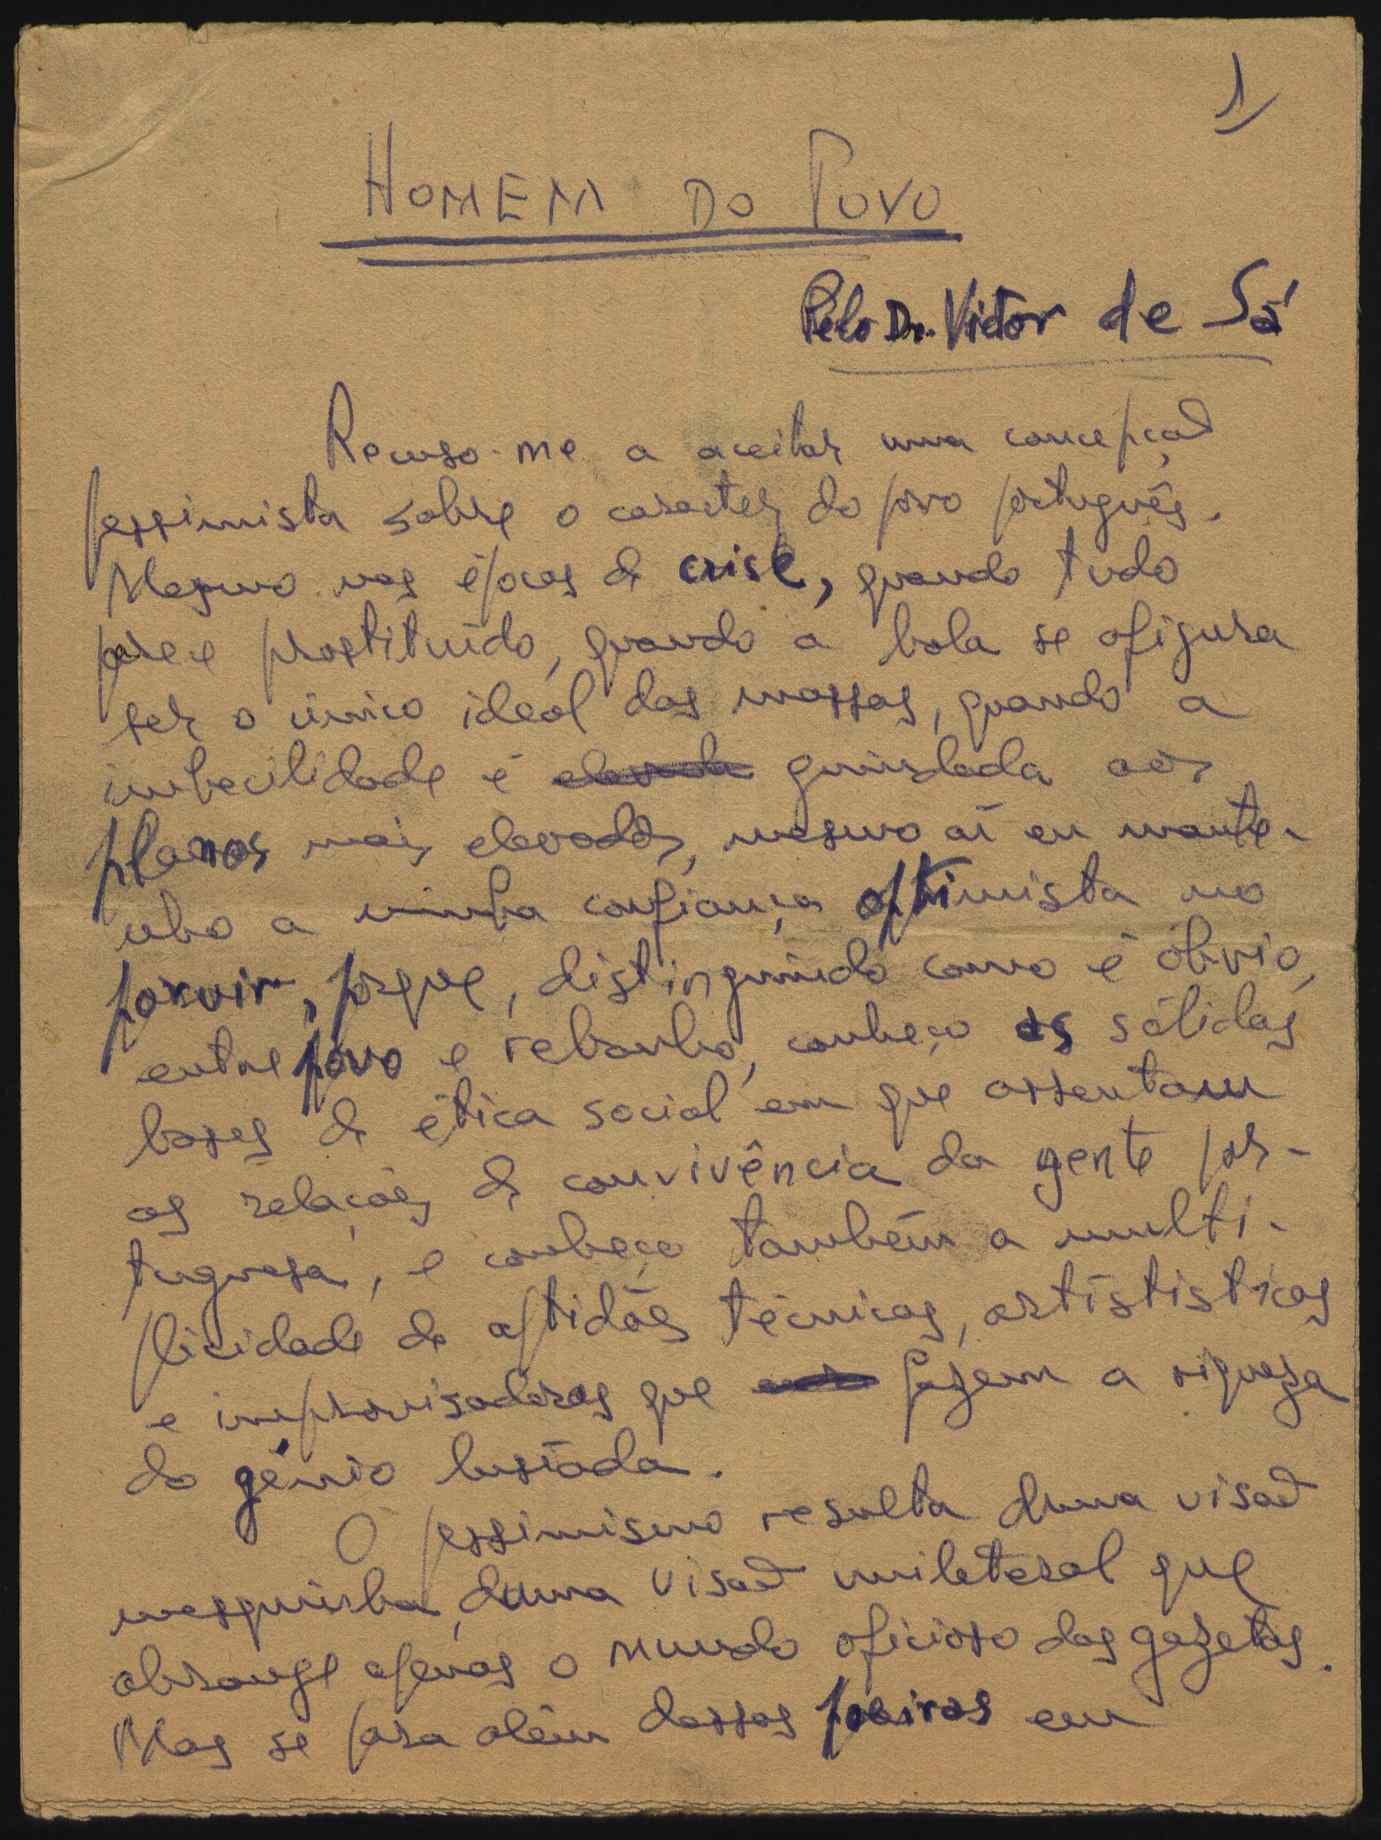 1
HOMEM DO POVO
Pelo Dr. Victor de Sá
Recuso-me a aceitar uma concepção
pessimista sobre o caracter do povo português.
Mesmo nas épocas de crise, quando tudo
parece prostituído, quando a bola se afigura
ser o único ideal das massas, quando a
imbecilidade é elevada guindada aos
planos mais elevados, mesmo aí eu mante-
nho a minha confiança optimista no
porvir, porque, distinguindo como é óbvio,
entre povo e rebanho, conheço as sólidas
bases de ética social em que assentam
as relações de convivência da gente por-
tuguesa, e conheço também a multi-
plicidade de aptidões técnicas, artístisticas
e improvisadoras que fazem a riqueza
do génio lusíada.
O pessimismo resulta duma visão
mesquinha, duma visão unilateral que
abrange apenas o mundo oficioso das gazetas.
Mas se para além dessas poeiras em